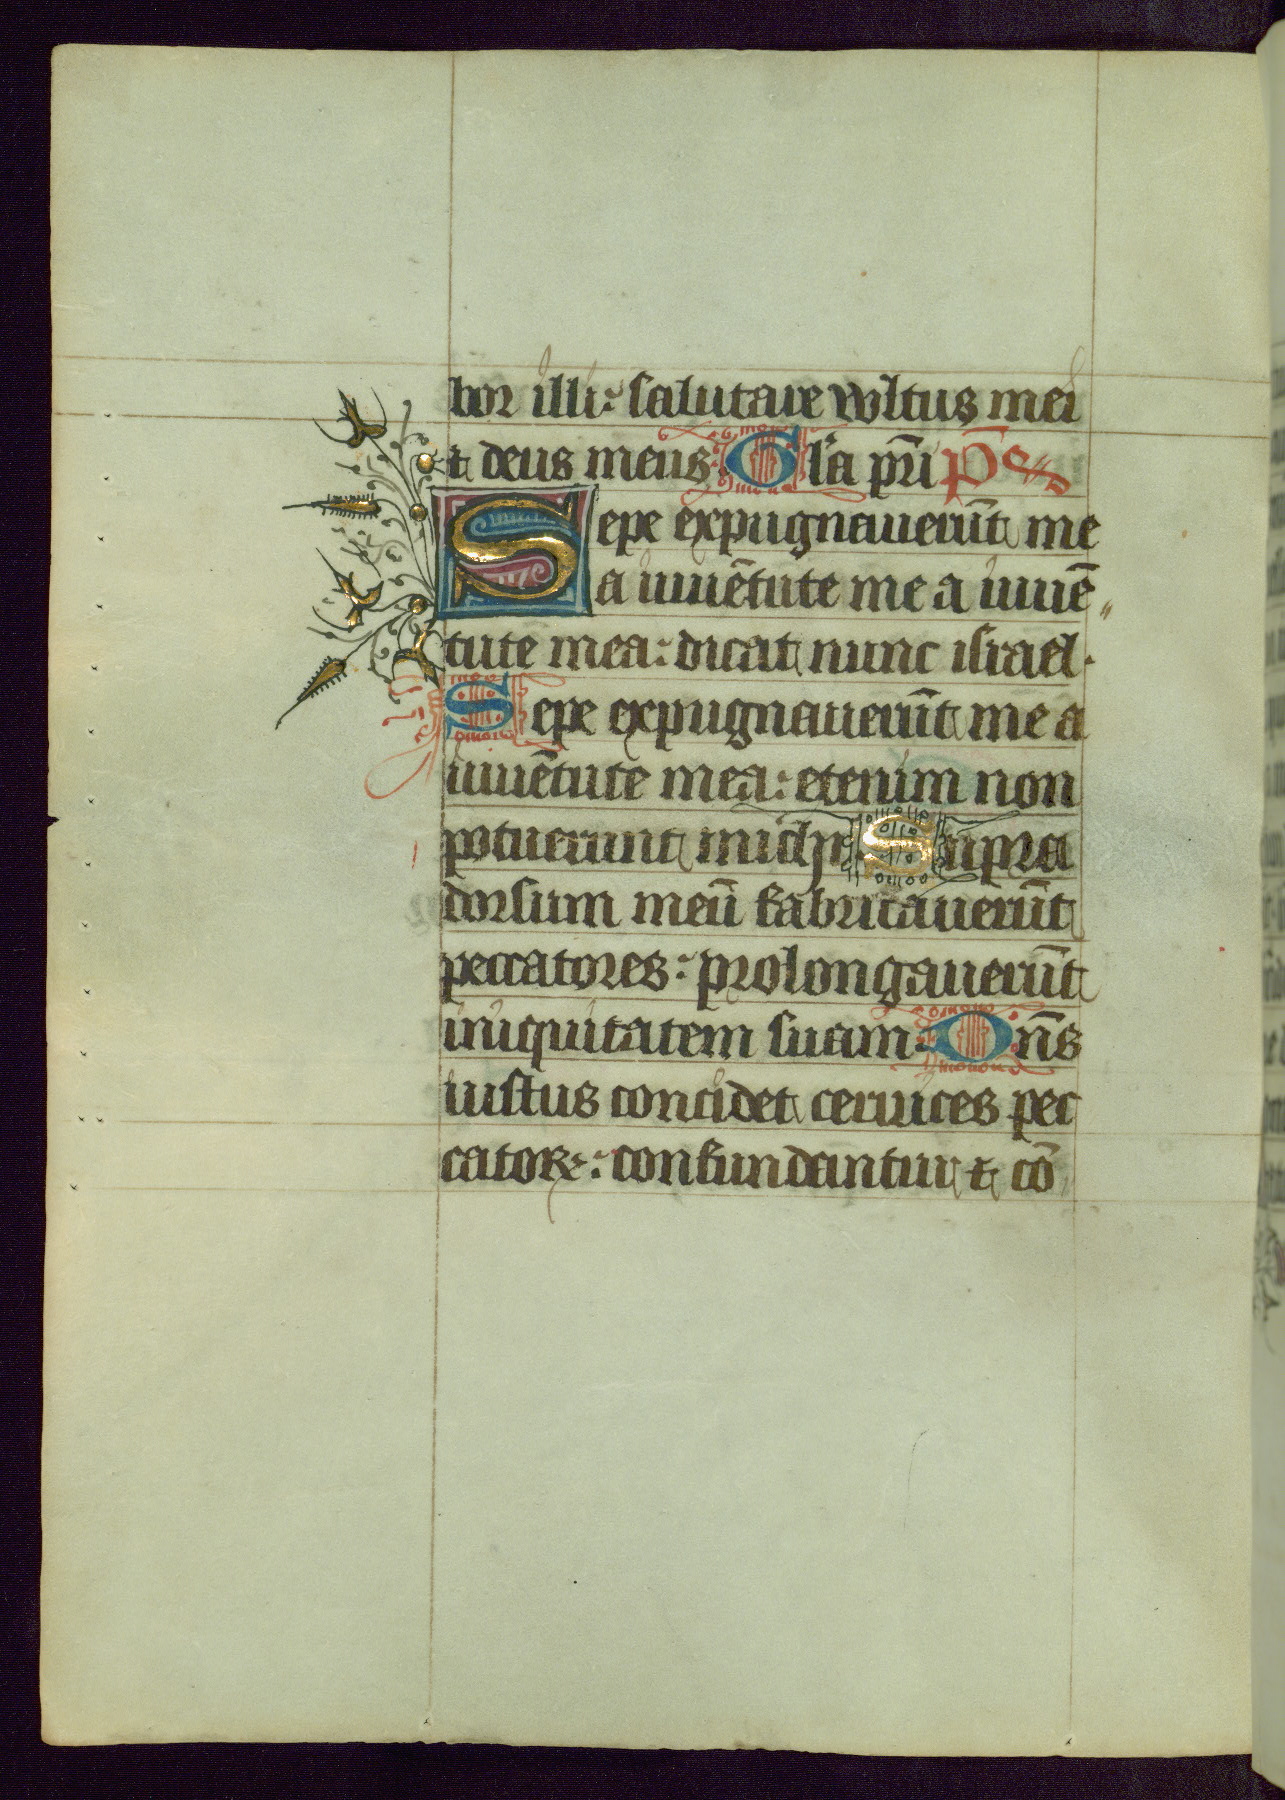 bor illi: salutare vultus mei
⁊ deus meus. Gl'a pr̄i p̄s
Sepe expugnauerūt me
a iuuētute me a iuuē〃
tute mea: dicat nunc israel.
Sepe expugnauerūt me a
iuuētute mea: etenim non
potuerunt michi. Supra
dorsum meū fabricauerūt
peccatores: prolongauerūt
iniquitatem suam. Dn̄s
iustus concidet ceruices pec
catoꝝ: confundantur ⁊ cō